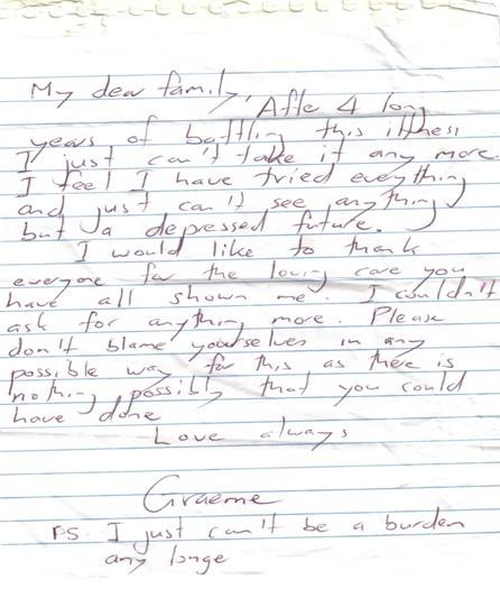 My dear family,
Afte 4 long
years of battling this illness
I just can't take it any more
I feel I have tried eveything
and just can't see anything
but a depressed future.
I would like to thank
everyone for the loving care you
have all shown me. I couldn't
ask for anything more. Please
don't blame yourselves in any
possible way for this as there is
nothing possibly that you could
have done
Love always
Graeme
P.S. I just can't be a burden
any longe